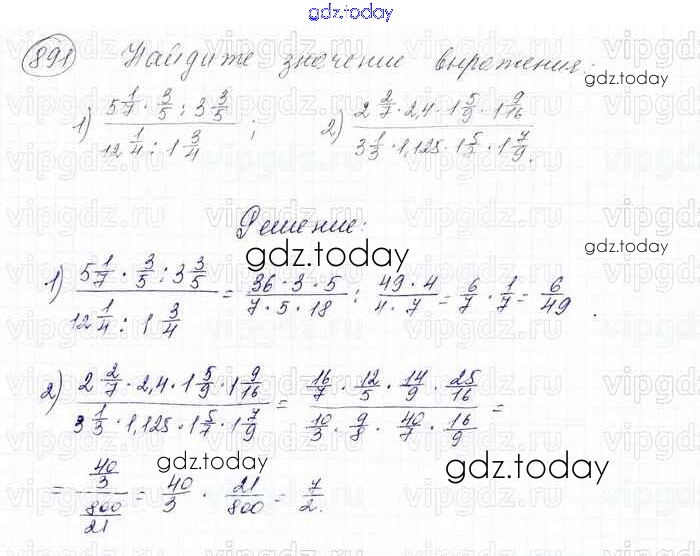 gdz.today
891 Найдите значение выражения:
gdz.today
1) (5 1/7 · 3/5 : 3 3/5) / (12 1/4 : 1 3/4) ; 2) (2 2/7 · 2,4 · 1 5/9 · 1 9/16) / (3 1/3 · 1,125 · 1 5/7 · 1 7/9).
Решение:
gdz.today
gdz.today
1) (5 1/7 · 3/5 : 3 3/5) / (12 1/4 : 1 3/4) = (36 · 3 · 5) / (7 · 5 · 18) : (49 · 4) / (4 · 7) = 6/7 · 1/7 = 6/49 .
2) (2 2/7 · 2,4 · 1 5/9 · 1 9/16) / (3 1/3 · 1,125 · 1 5/7 · 1 7/9) = (16/7 · 12/5 · 14/9 · 25/16) / (10/3 · 9/8 · 40/7 · 16/9) =
= (40/3) / (800/21) = 40/3 · 21/800 = 7/2.
gdz.today
gdz.today